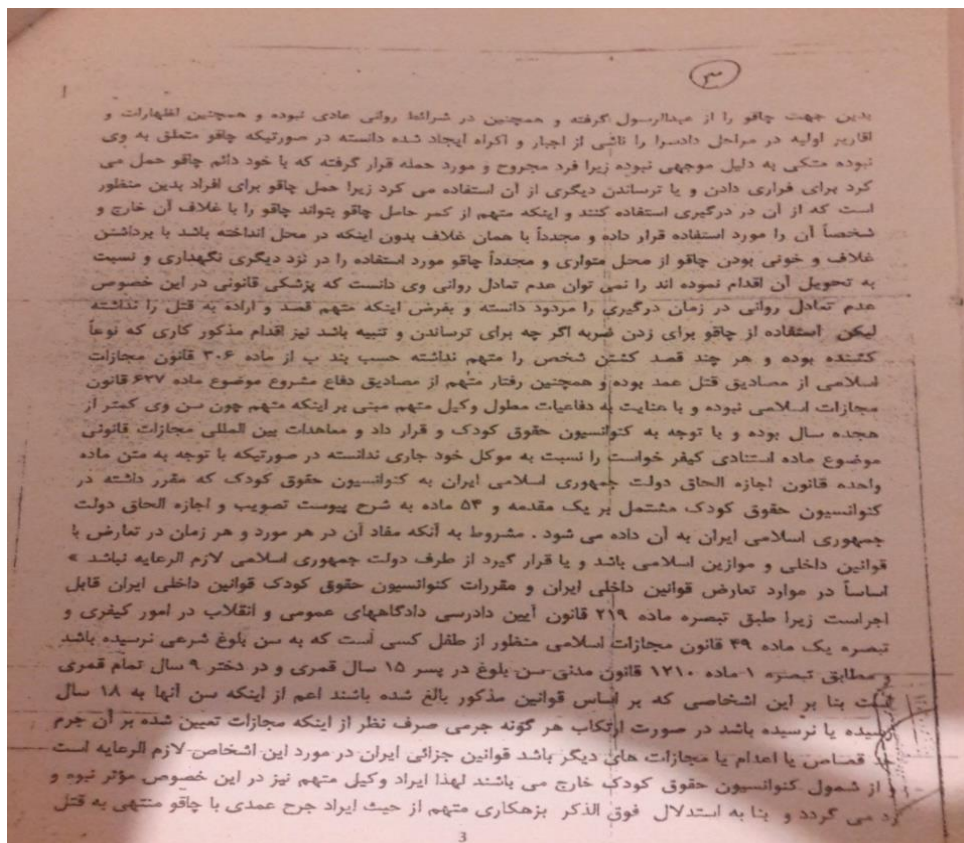 ۳
بدین جهت چاقو را از عبدالرسول گرفته و همچنین در شرائط روانی عادی نبوده و همچنین اظهارات و
اقاریر اولیه در مراحل دادسرا را ناشی از اجبار و اکراه ایجاد شده دانسته در صورتیکه چاقو متعلق به وی
نبوده متکی به دلیل موجهی نبوده زیرا فرد مجروح و مورد حمله قرار گرفته که با خود دائم چاقو حمل می
کرد برای فراری دادن و یا ترساندن دیگری از آن استفاده می کرد زیرا حمل چاقو برای افراد بدین منظور
است که از آن در درگیری استفاده کنند و اینکه متهم از کمر حامل چاقو بتواند چاقو را با غلاف آن خارج و
شخصاً آن را مورد استفاده قرار داده و مجدداً با همان غلاف بدون اینکه در محل انداخته باشد با برداشتن
غلاف و خونی بودن چاقو از محل متواری و مجدداً چاقو مورد استفاده را در نزد دیگری نگهداری و نسبت
به تحویل آن اقدام نموده اند را نمی توان عدم تعادل روانی وی دانست که پزشکی قانونی در این خصوص
عدم تعادل روانی در زمان درگیری را مردود دانسته و بفرض اینکه متهم قصد و اراده به قتل را نداشته
لیکن استفاده از چاقو برای زدن ضربه اگر چه برای ترساندن و تنبیه باشد نیز اقدام مذکور کاری که نوعاً
کشنده بوده و هر چند قصد کشتن شخص را متهم نداشته حسب بند ب از ماده ۳۰۶ قانون مجازات
اسلامی از مصادیق قتل عمد بوده و همچنین رفتار متهم از مصادیق دفاع مشروع موضوع ماده ۶۲۷ قانون
مجازات اسلامی نبوده و با عنایت به دفاعیات مطول وکیل متهم مبنی بر اینکه متهم چون سن وی کمتر از
هجده سال بوده و با توجه به کنوانسیون حقوق کودک و قرار داد و معاهدات بین المللی مجازات قانونی
موضوع ماده استنادی کیفر خواست را نسبت به موکل خود جاری ندانسته در صورتیکه با توجه به متن ماده
واحده قانون اجازه الحاق دولت جمهوری اسلامی ایران به کنوانسیون حقوق کودک که مقرر داشته در
کنوانسیون حقوق کودک مشتمل بر یک مقدمه و ۵۴ ماده به شرح پیوست تصویب و اجازه الحاق دولت
جمهوری اسلامی ایران به آن داده می شود . مشروط به آنکه مفاد آن در هر مورد و هر زمان در تعارض با
قوانین داخلی و موازین اسلامی باشد و یا قرار گیرد از طرف دولت جمهوری اسلامی لازم الرعایه نباشد »
اساساً در موارد تعارض قوانین داخلی ایران و مقررات کنوانسیون حقوق کودک قوانین داخلی ایران قابل
اجراست زیرا طبق تبصره ماده ۲۱۹ قانون آیین دادرسی دادگاههای عمومی و انقلاب در امور کیفری و
تبصره یک ماده ۴۹ قانون مجازات اسلامی منظور از طفل کسی است که به سن بلوغ شرعی نرسیده باشد
و مطابق تبصره ۱ ماده ۱۲۱۰ قانون مدنی سن بلوغ در پسر ۱۵ سال قمری و در دختر ۹ سال تمام قمری
است بنا بر این اشخاصی که بر اساس قوانین مذکور بالغ شده باشند اعم از اینکه سن آنها به ۱۸ سال
رسیده یا نرسیده باشد در صورت ارتکاب هر گونه جرمی صرف نظر از اینکه مجازات تعیین شده بر آن جرم
حد قصاص یا اعدام یا مجازات های دیگر باشد قوانین جزائی ایران در مورد این اشخاص لازم الرعایه است
و از شمول کنوانسیون حقوق کودک خارج می باشند لهذا ایراد وکیل متهم نیز در این خصوص مؤثر نبوه و
رد می گردد و بنا به استدلال فوق الذکر بزهکاری متهم از حیث ایراد جرح عمدی با چاقو منتهی به قتل
3